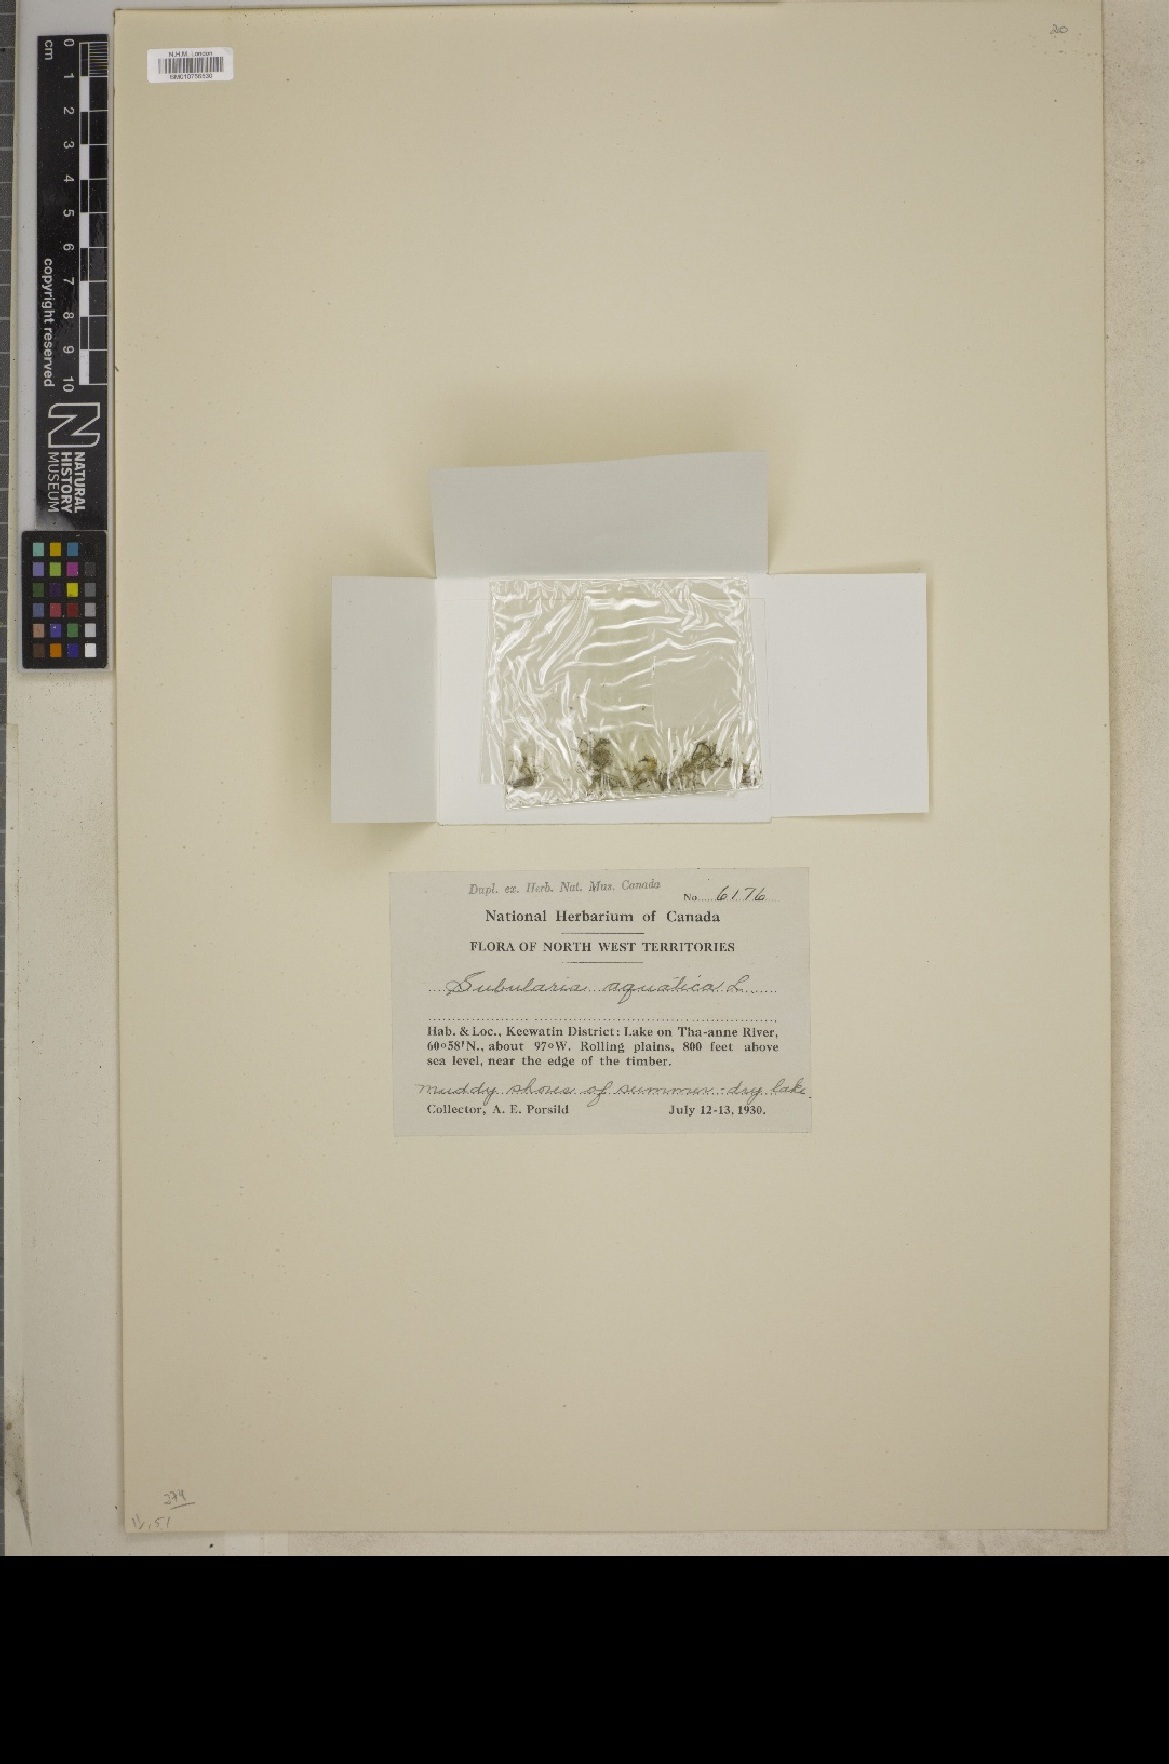 20
N.H.M. London
0 1 2 3 4 5 6 7 8 9 10
cm
copyright reserved
NATURAL
HISTORY
MUSEUM
Dupl. ex. Herb. Nat. Mus. Canada
No. 6176
National Herbarium of Canada
FLORA OF NORTH WEST TERRITORIES
Subularia aquatica L.
Hab. & Loc., Keewatin District: Lake on Tha-anne River,
60°58'N., about 97°W. Rolling plains, 800 feet above
sea level, near the edge of the timber.
muddy shores of summer-dry lake.
Collector, A. E. Porsild July 12-13, 1930.
374